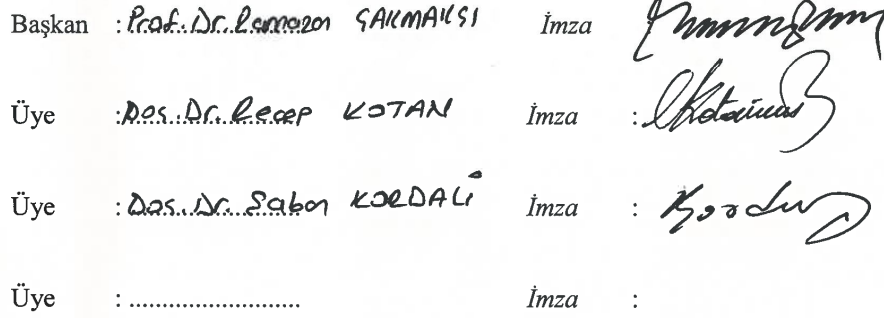 Başkan : Prof. Dr. Ramazan ÇAKMAKÇI İmza
Üye : Doç. Dr. Recep KOTAN İmza :
Üye : Doç. Dr. Şaban KORDALİ İmza :
Üye : ........................ İmza :